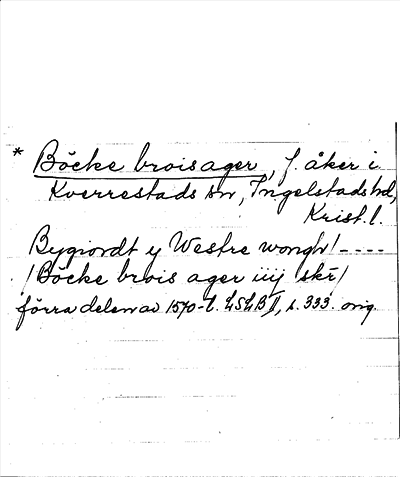 * Böcke broisager, f. åker i
Kverrestads sn, Ingelstads hd,
Krist. l.
Bygiordt y Westre wongh/----
/Böcke brois ager iiij skr/
förra delen av 1570-t. LSLB II, s. 333. orig.